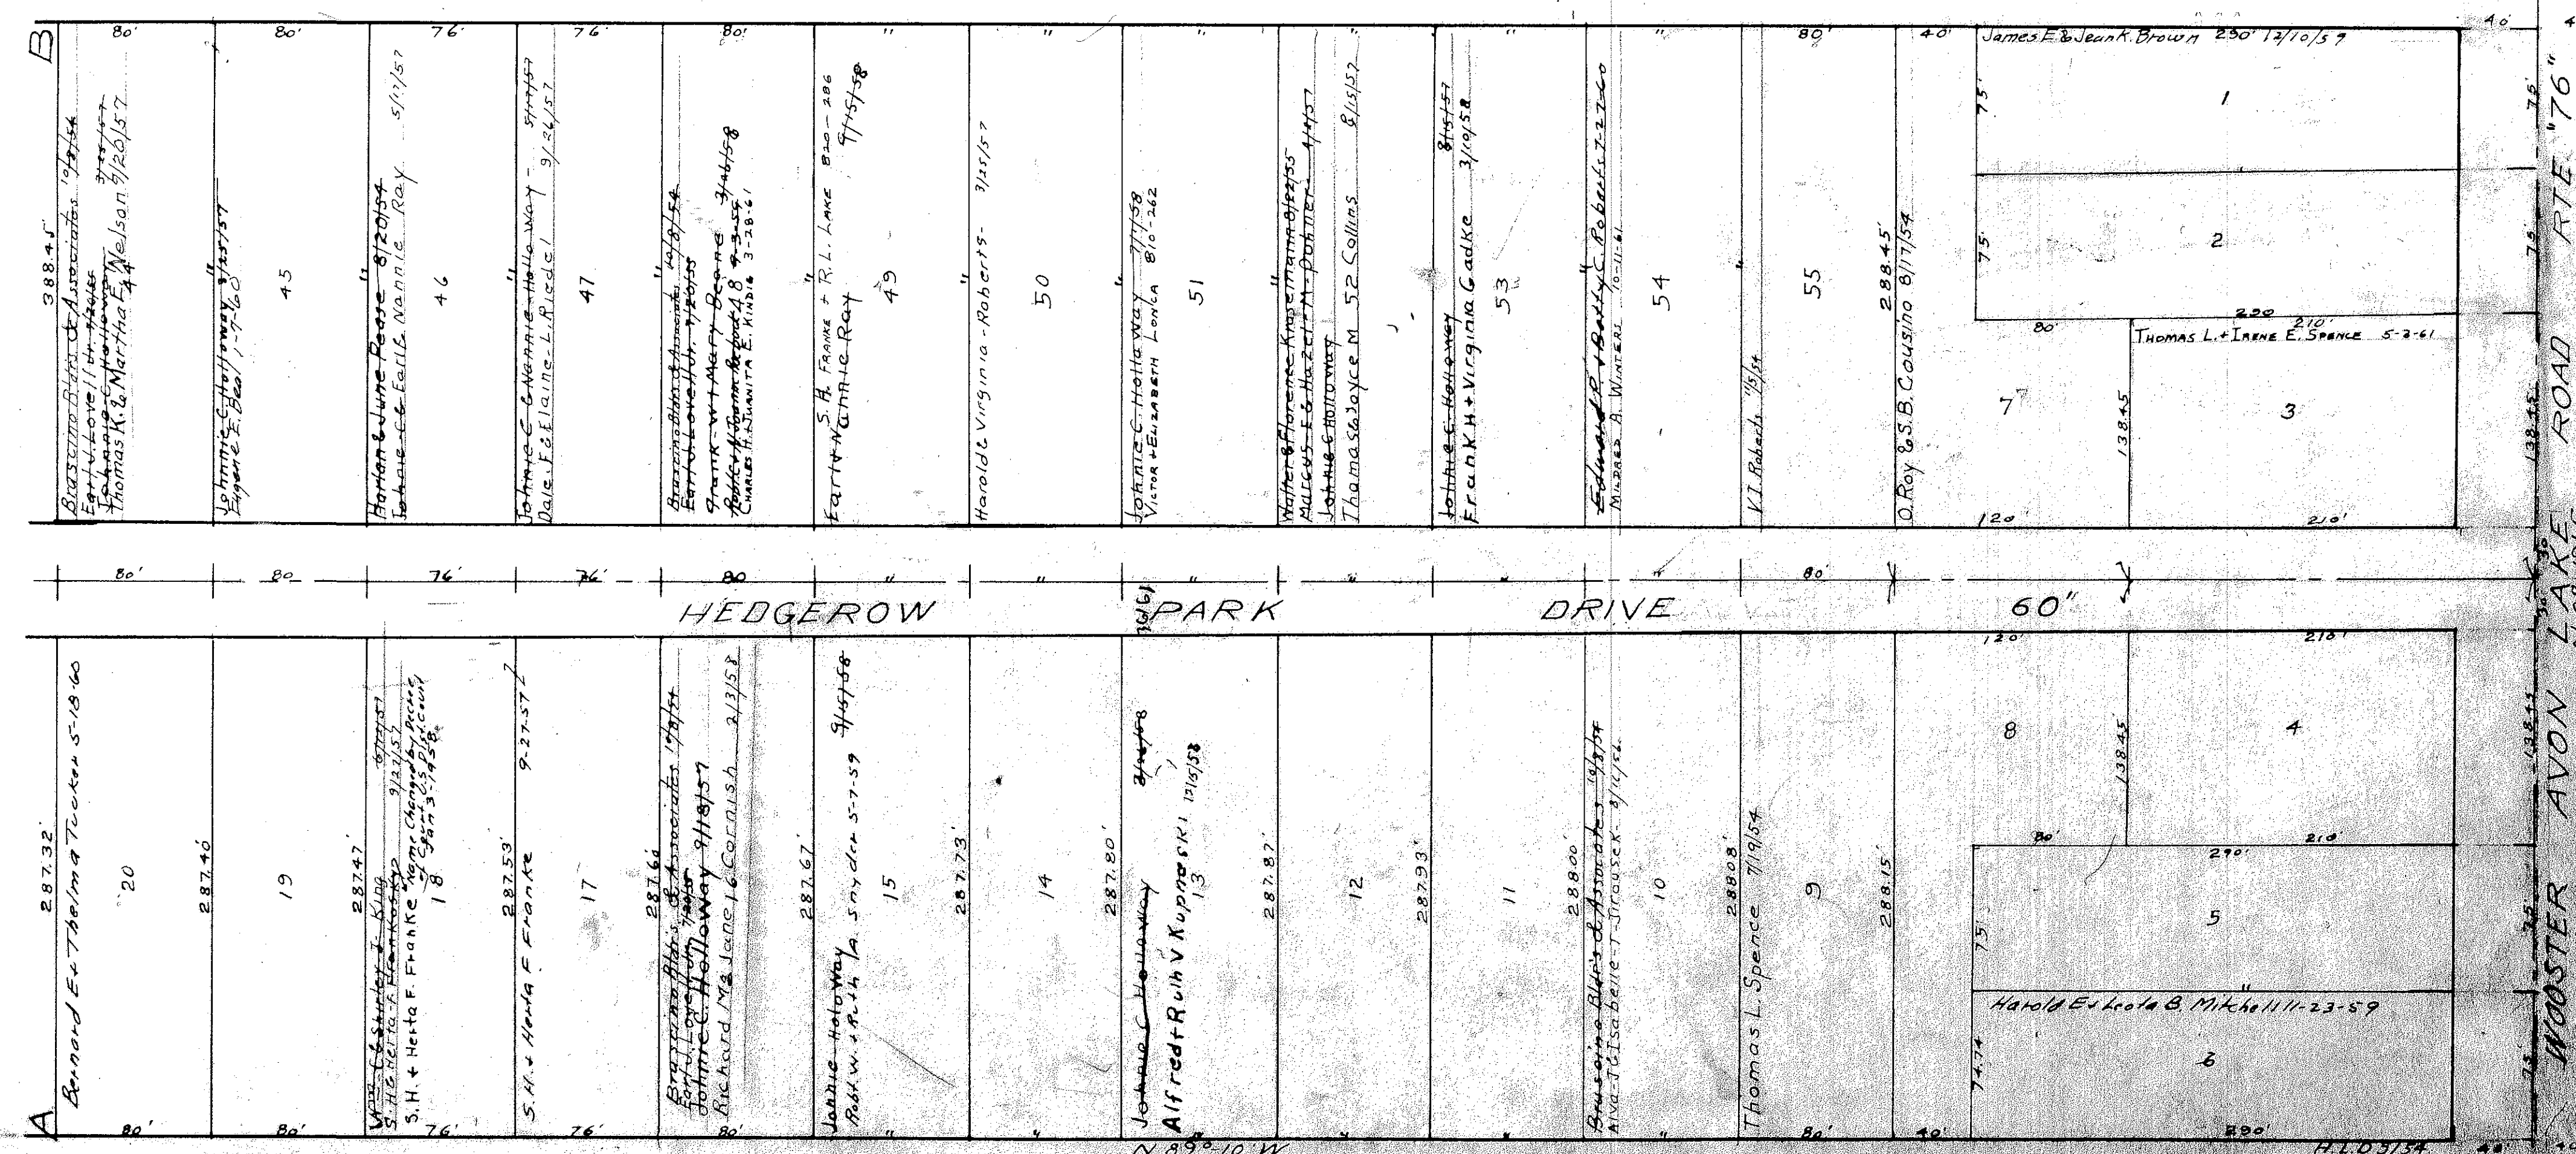 B
80'
80'
76'
76'
80'
"
"
"
"
"
"
80'
40'
James E & Jean K. Brown 290' 12/10/59
40'
388.45'
Bruscino Bldrs & Associates 10/8/54
Earl J. Lovell Jr. 7/20/55
Johnnie C. Holloway 3/25/57
Thomas K. & Martha E. Nelson 9/20/57
44
"
Johnnie C. Holloway 3/25/57
Eugene E. Beal 1-7-60
45
"
Harlan & June Pease 8/20/54
Johnie C & Earl & Nannie Ray 5/17/57
46
"
Johnnie C & Nannie Holloway - 5/17/57
Dale F & Elaine L. Riedel 9/26/57
47
"
Bruscino Blдrs & Associates 10/8/54
Earl J. Lovell Jr. 7/20/55
Frank W & Mary Beane 3/26/58
48
9-3-59
CHARLES H. & JUANITA E. KINDIG 3-28-61
"
S. H. FRANKE + R.L. LAKE 820-286
Earl & Nannie Ray 9/15/58
49
"
Harold & Virginia Roberts - 3/25/57
50
"
Johnnie C. Holloway 7/17/58
VICTOR + ELIZABETH LONCA 810-262
51
"
Walter & Florence Knasemann 8/22/55
Marcus E & Hazel M. Pohner
Johnnie C Holloway
Thomas & Joyce M Collins 8/15/57
52
"
Johnnie C. Holloway 8/15/57
Frank H + Virginia Gadke 3/10/58
53
"
Edward P. + Betty C. Roberts 7-27-60
MILDRED A. WINTERS 10-11-61
54
"
V.I. Roberts 11/5/54
55
288.45'
O. Roy & S.B. Cousino 8/17/54
75'
1
75'
75'
2
75'
290
80'
210'
THOMAS L. + IRENE E. SPENCE 5-3-61
7
138.45
3
138.45
120'
210'
80'
80
76'
76'
80
"
"
"
"
"
"
80'
30
30
HEDGEROW PARK DRIVE 60"
WOOSTER AVON LAKE ROAD RTE "76"
120'
210'
287.32'
Bernard E + Thelma Tucker 5-18-60
20
287.40'
19
287.47'
S. H. & Herta F. Frankosky 9/27/57
S. H. + Herta F. Franke Name Changed by Decree
of Court U.S. Dist. Court
Jan 3-1958
18
287.53'
S.H. + Herta F Franke 9-27-57
17
287.60'
Bruscino Bldrs & Associates 10/8/54
Earl J. Lovell Jr. 7/20/55
Johnnie C. Holloway 9/18/57
Richard M & Jane Cornish 2/13/58
16
287.67'
Johnnie Holloway 9/15/58
Robt W. + Ruth A. Snyder 5-7-59
15
287.73'
14
287.80'
Johnnie C Holloway 3/26/58
Alfred + Ruth V Kupneski 12/15/58
13
287.87'
12
287.93'
11
288.00'
Bruscino Bldrs & Associates 10/8/54
Alva J & Isabelle T Jirousek
10
288.08'
Thomas L. Spence 7/19/54
9
288.15'
8
138.45
4
138.45
80'
210'
290'
75'
5
75
"
Harold E + Leota B. Mitchell 11-23-59
74.74
6
75'
A
80'
80'
76'
76'
80'
"
"
"
"
"
"
80'
40'
290'
N 89°-10' W
H.L.D 5/54